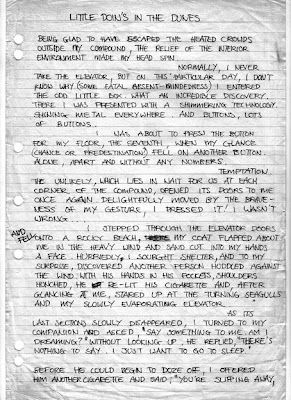 LITTLE DOIN'S IN THE DUNES
BEING GLAD TO HAVE ESCAPED THE HEATED CROWDS
OUTSIDE MY COMPOUND, THE RELIEF OF THE INTERIOR
ENVIRONMENT MADE MY HEAD SPIN.
NORMALLY, I NEVER
TAKE THE ELEVATOR, BUT ON THIS PARTICULAR DAY, I DON'T
KNOW WHY (SOME FATAL ABSENT-MINDEDNESS) I ENTERED
THE ODD LITTLE BOX. WHAT AN INCREDIBLE DISCOVERY.
THERE I WAS PRESENTED WITH A SHIMMERING TECHNOLOGY
SHINING METAL EVERYWHERE AND BUTTONS, LOTS
OF BUTTONS.
I WAS ABOUT TO PRESS THE BUTTON
FOR MY FLOOR, THE SEVENTH, WHEN MY GLANCE
(CHANCE OR PREDESTINATION) FELL ON ANOTHER BUTTON.
ALONE, APART AND WITHOUT ANY NUMBERS.
TEMPTATION.
THE UNLIKELY, WHICH LIES IN WAIT FOR US AT EACH
CORNER OF THE COMPOUND, OPENED ITS DOORS TO ME
ONCE AGAIN. DELIGHTFULLY MOVED BY THE BRAVE-
NESS OF MY GESTURE, I PRESSED IT! I WASN'T
WRONG.
I STEPPED THROUGH THE ELEVATOR DOORS
AND FELL
TO A ROCKY BEACH, MY COAT FLAPPED ABOUT
ME IN THE HEAVY WIND AND SAND CUT INTO MY HANDS
& FACE. HURRIEDLY, I SOUGHT SHELTER, AND TO MY
SURPRISE, DISCOVERED ANOTHER PERSON HUDDLED AGAINST
THE WIND WITH HIS HANDS IN HIS POCKETS, SHOULDERS
HUNCHED, HE RE-LIT HIS CIGARETTE AND, AFTER
GLANCING AT ME, STARED UP AT THE TURNING SEAGULLS
AND MY SLOWLY EVAPORATING ELEVATOR.
AS ITS
LAST SECTIONS SLOWLY DISAPPEARED, I TURNED TO MY
COMPANION AND ASKED, "SAY SOMETHING TO ME. AM I
DREAMING?" WITHOUT LOOKING UP, HE REPLIED, "THERE'S
NOTHING TO SAY. I JUST WANT TO GO TO SLEEP."
BEFORE HE COULD BEGIN TO DOZE OFF, I OFFERED
HIM ANOTHER CIGARETTE AND SAID, "YOU'RE SLIPPING AWAY,